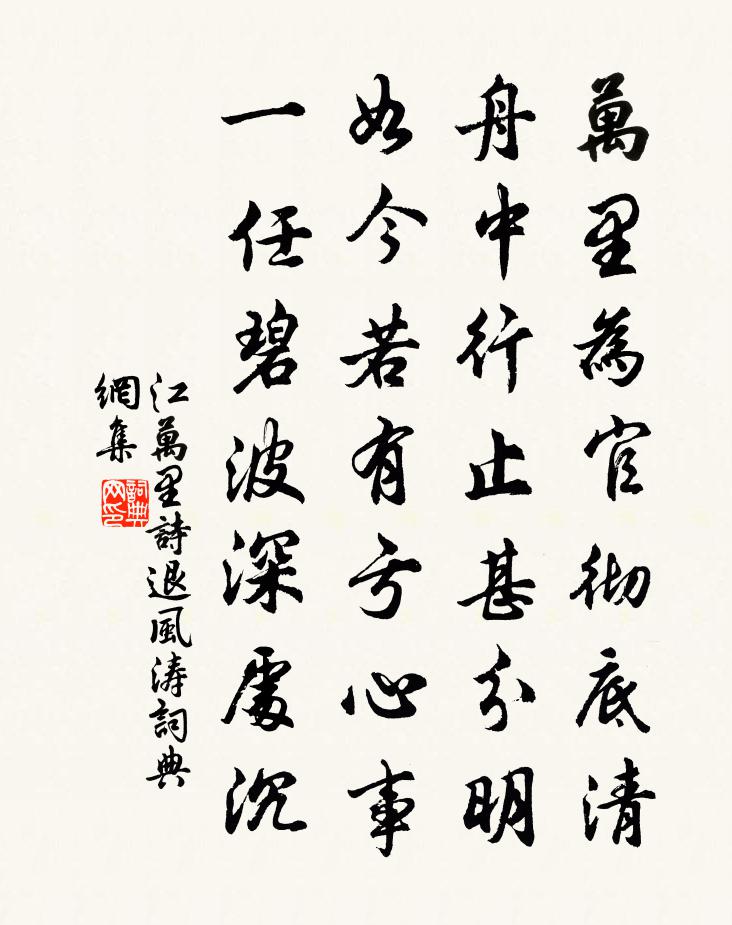 萬里為官彻底清
舟中行止甚分明
如今若有亏心事
一任碧波深處沉
江萬里詩退風濤詞典
網集
詞典
网印